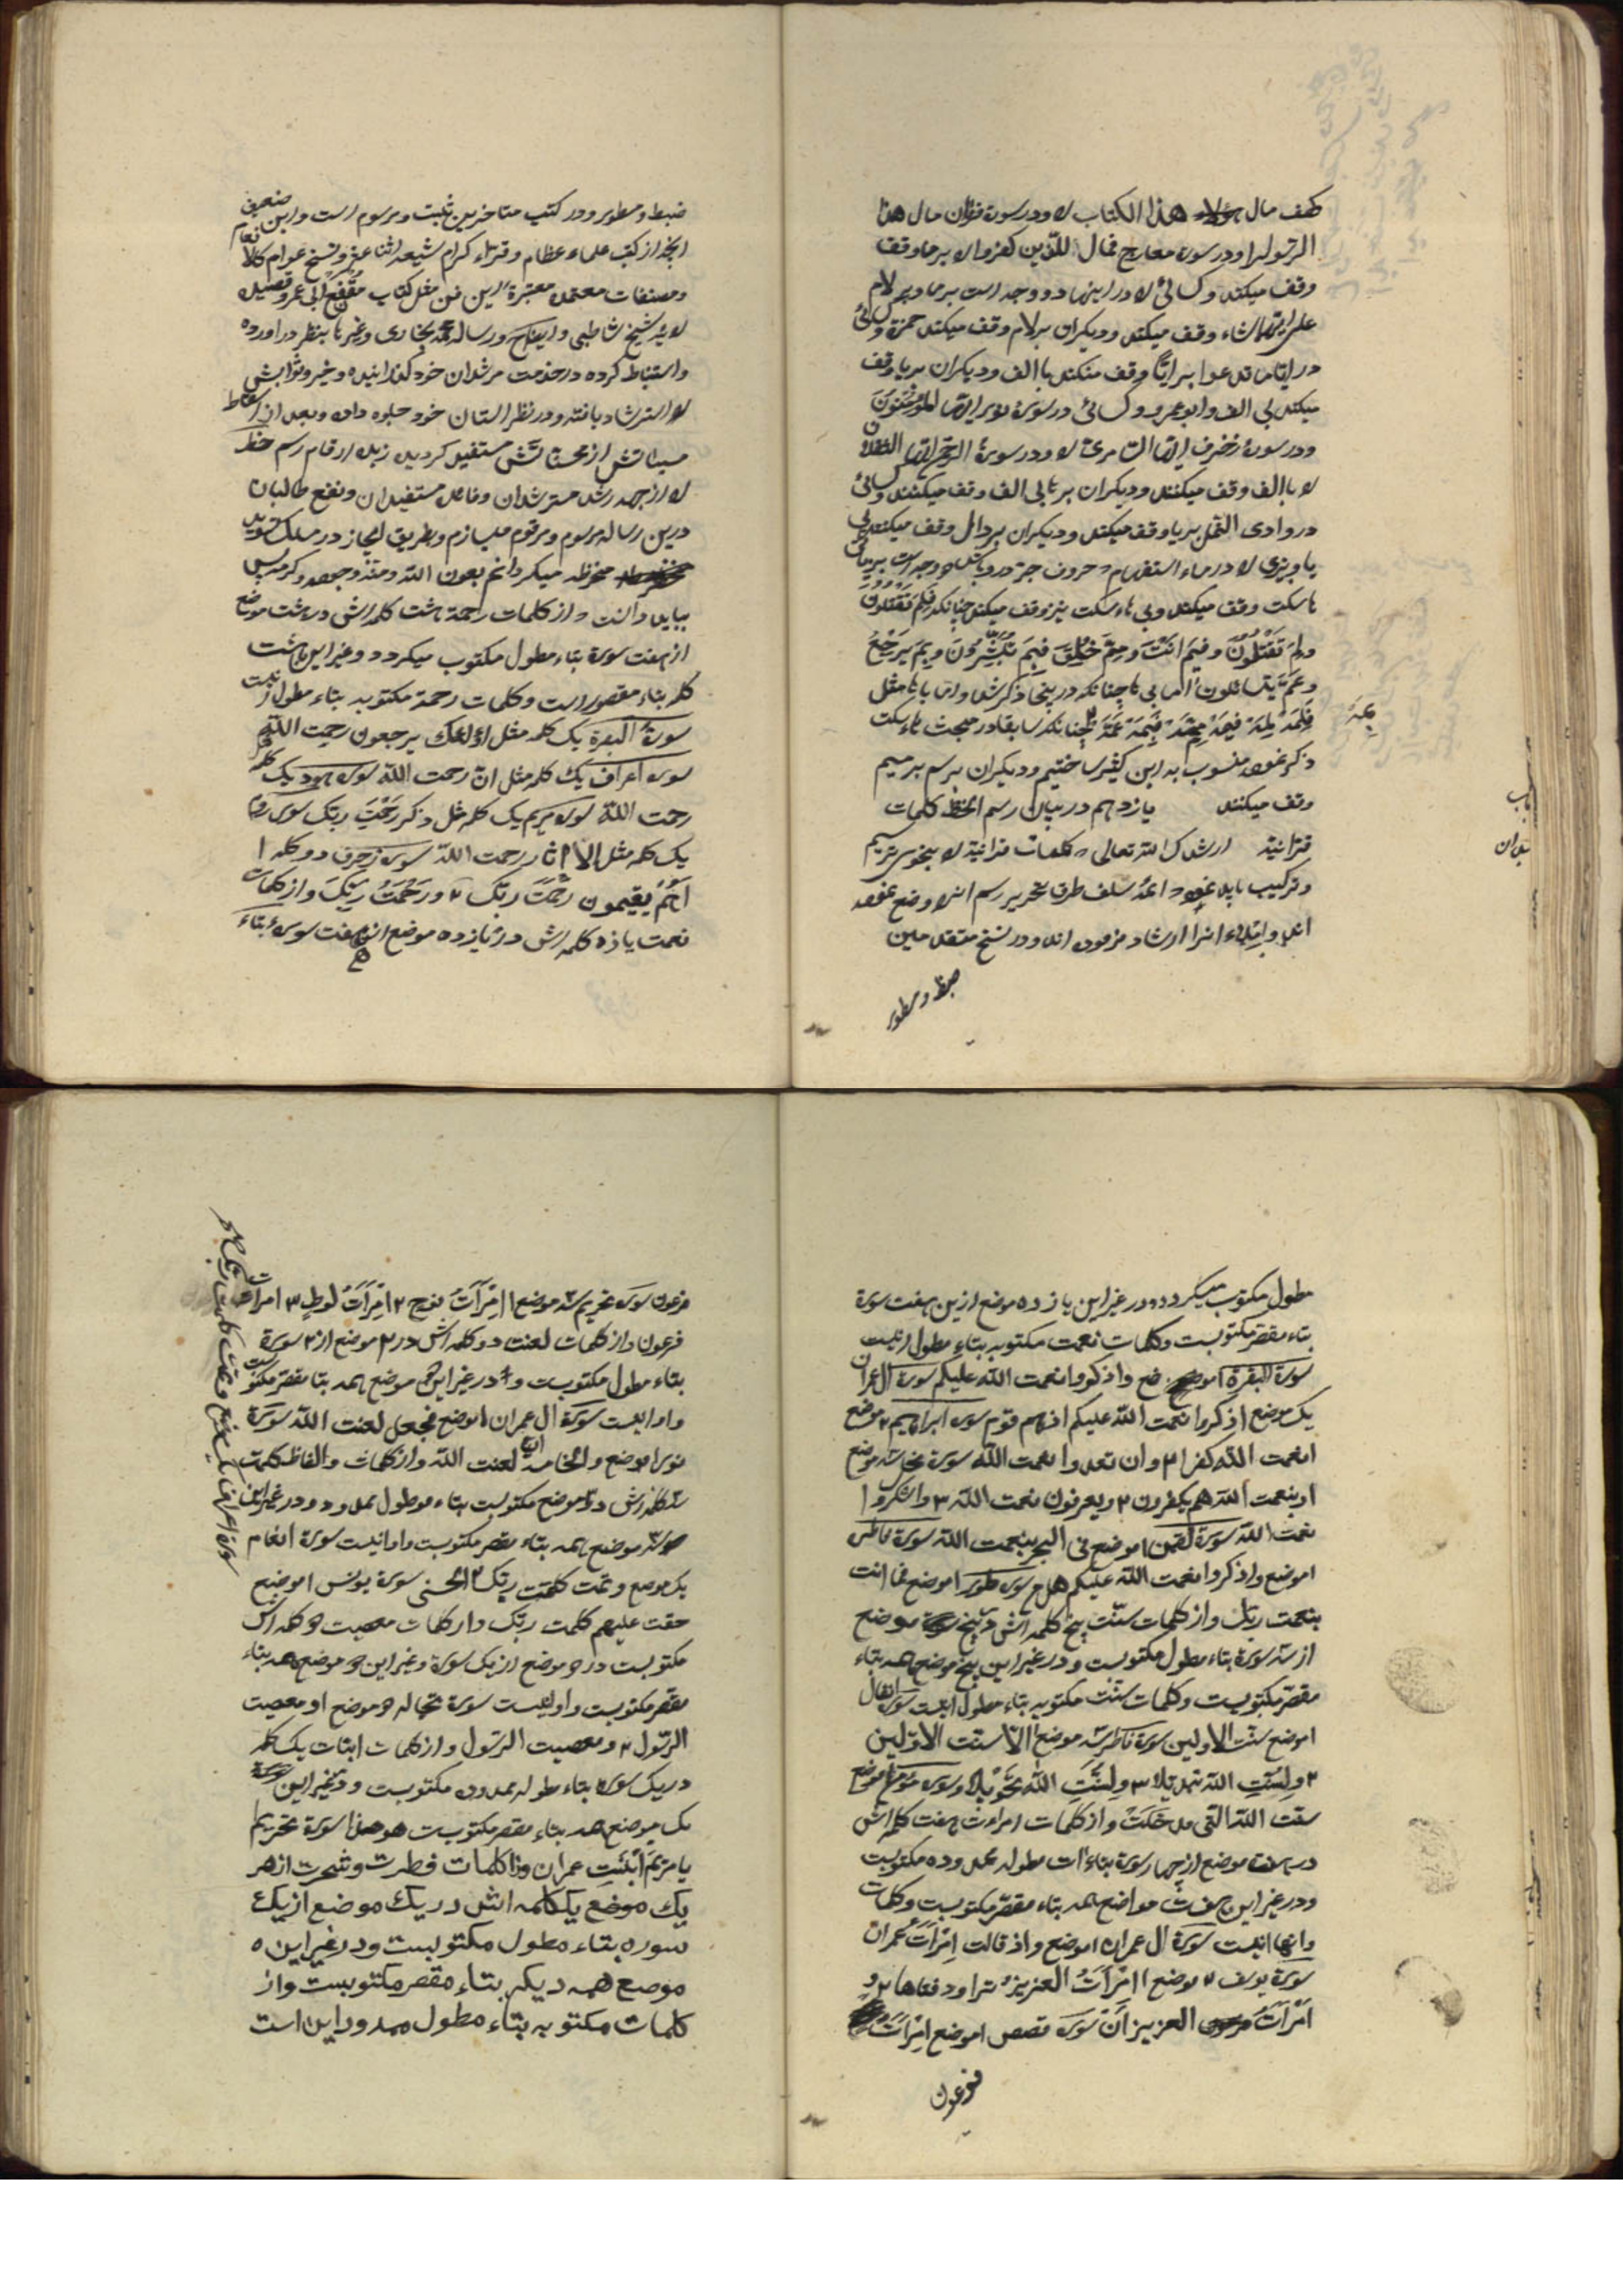 کهف مال هذا الکتاب لا ودر سورة فرقان مال هذا
الرسول را ودر سوره معارج فمال للذین کفروا لا بر ما وقف
وقف میکنند وکسائی لا در اینها دو وجه است بر ما و بر لام
وقف میکنند ودیکران بر لام وقف میکنند حمزة وکسائی
در ایاما تدعوا بر ایاً وقف میکنند باالف ودیکران بر ما وقف
میکنند بی الف وابو عمرو وکسائی در سورة نور ایها المؤمنون
ودر سورة زخرف ایها الساحر لا ودر سورة الرحمن ایها الثقلان
لا باالف وقف میکنند ودیکران بر ها بی الف وقف میکنند وکسائی
در وادی النمل بر یا وقف میکند ودیکران بر دال وقف میکنند بی
یا وبزی لا در ماء استفهام حروف جر درو باشد دو وجه است
ها سکت وقف میکند وبی هاء سکت نیز وقف میکند چنانکه فلم تقتلون
ولم تقتلون وفیم انت ومم خلق فبم تبشرون وبم یرجع
وعم یتسائلون اما بی ها چنانکه در ینجا ذکر شد واما با ها مثل
فلمه لمه فیمه ممه فبمه عمه چنانکه سابقا در مبحث هاء سکت
ذکر نموده منسوب به ابن کثیر ساختیم ودیکران بر رسم بر میم
وقف میکنند یازدهم در بیان رسم الخط کلمات
قرآنیة ارشدک الله تعالی کلمات قرآنیة لا بنحوی ترسیم
وترکیب باید نمود ائمۀ سلف طرق تحریر رسم انرا وضع نموده
اند وابتداء انرا ارشاد فرموده اند ودر نسخ متقدمین
ضبط ومسطور
ضبط ومسطور ودر کتب متاخرین ثبت ومرسوم است واین ضعیف
انچه از کتب علماء عظام وقراء کرام شیعه اثنا عشر ونسخ عوام کالانعام
ومصنفات معتمده معتبرة این فن مثل کتاب مقنع ابی عمرو وقصیده
لائیه شیخ شاطبی وایضاح ورساله محمد بخاری وغیرها بنظر در اورده
واستنباط کرده در خدمت مرشدان خود کذرانیده وخیر وثوابش
لا استرشاد یافته ودر نظر استان خود جلوه داده وبعد از اسقاط
سیئاتش از محسناتش مستفید کردیده زبده ارقام رسم خط
لا از جهة رشد مسترشدان وفائدۀ مستفیدان ونفع طالبان
درین رساله مرسوم ومرقوم میسازم وبطریق ایجاز در مسلک سوید
منخرطه میکردانم بعون الله ومنه وجوده وکرمه پس
بباید دانست از کلمات رحمة هشت کلمه اش در هشت موضع
از هفت سورة بتاء مطول مکتوب میکردد وغیر این هشت
کلمه بتاء مقصور است وکلمات رحمة مکتوبه بتاء مطول اینست
سورة البقرة یک کلمه مثل اولئک یرجعون رحمت الله
سوره اعراف یک کلمه مثل ان رحمت الله سوره هود یک کلمه
رحمت الله سوره مریم یک کلمه مثل ذکر رحمت ربک سوره روم
یک کلمه مثل الا اثار رحمت الله سوره زخرف دو کلمه ۱
اهم یقیمون رحمت ربک ۲ ورحمت ربک واز کلمات
نعمت یازده کلمه اش در یازده موضع از هفت سوره بتاء
مطول مکتوب میکردد ودر غیر این یازده موضع ازین هفت سورة
بتاء مقصر مکتوبست وکلمات نعمت مکتوبه بتاء مطول اینست
سورة البقرة ا موضع واذکروا نعمت الله علیکم سورة ال عمران
یک موضع اذکروا نعمت الله علیکم اذ هم قوم سوره ابراهیم ۲ موضع
ا نعمت الله کفرا ۲ وان تعدوا نعمت الله سورة نحل سه موضع
ا وبنعمت الله هم یکفرون ۲ ویعرفون نعمت الله ۳ واشکروا
نعمت الله سورة لقمن ا موضع فی البحر بنعمت الله سورة فاطر
ا موضع واذکروا نعمت الله علیکم هل سوره طور ا موضع فما انت
بنعمت ربک واز کلمات سنت پنج کلمه اش در پنج موضع
از سه سورة بتاء مطول مکتوبست ودر غیر این پنج موضع همه بتاء
مقصر مکتوبست وکلمات سنت مکتوبه بتاء مطول اینست سوره انفال
ا موضع سنت الاولین سورة فاطر سه موضع ا الا سنت الاولین
۲ ولسنت الله تبدیلا ۳ ولسنت الله تحویلا وسوره مؤمن ا موضع
سنت الله التی قد خلت واز کلمات امراءت هفت کلمه اش
در هفت موضع از چهار سورة بتاءات مطوله ممدوده مکتوبست
ودر غیر این هفت مواضع همه بتاء مقصر مکتوبست وکلمات
وانها اینست سورة ال عمران ا موضع واذ قالت امرات عمران
سورة یوسف ۲ موضع ا امرات العزیز تراود فتاها ۲ و
امرات العزیز الان سوره قصص ا موضع امرات
فرعون
فرعون سوره تحریم سه موضع ا امرات نوح ۲ امرات لوط ۳ امرات
فرعون واز کلمات لعنت دو کلمه اش در ۲ موضع از ۲ سورة
بتاء مطول مکتوبست ودر غیر این موضع همه بتا مقصر مکتوبست
واو اینست سورة ال عمران ا موضع فنجعل لعنت الله سورة
نور ا موضع والخامسة ان لعنت الله واز کلمات والفاظ کلمت
سه کلمه اش در سه موضع مکتوبست بتاء مطول ممدود ودر غیر این
سه موضع همه بتاء مقصر مکتوبست واو اینست سورة انعام
یک موضع وتمت کلمت ربک الحسنی سورة یونس ا موضع
حقت علیهم کلمت ربک واز کلمات معصیت دو کلمه اش
مکتوبست در دو موضع از یک سورة وغیر این دو موضع همه بتاء
مقصر مکتوبست واو اینست سورة مجادله دو موضع ا ومعصیت
الرسول ۲ ومعصیت الرسول واز کلمات ابنات یک کلمه
در یک سورة بتاء مطوله ممدوده مکتوبست ودر غیر این
یک موضع همه بتاء مقصر مکتوبست هو هذا سورة تحریم ا
یا مریم ابنت عمران واز کلمات فطرت وشجرت از هر
یک موضع یک کلمه اش در یک موضع از یک
سوره بتاء مطول مکتوبست ودر غیر این
موضع همه دیکر بتاء مقصر مکتوبست واز
کلمات مکتوبه بتاء مطول ممدود این است